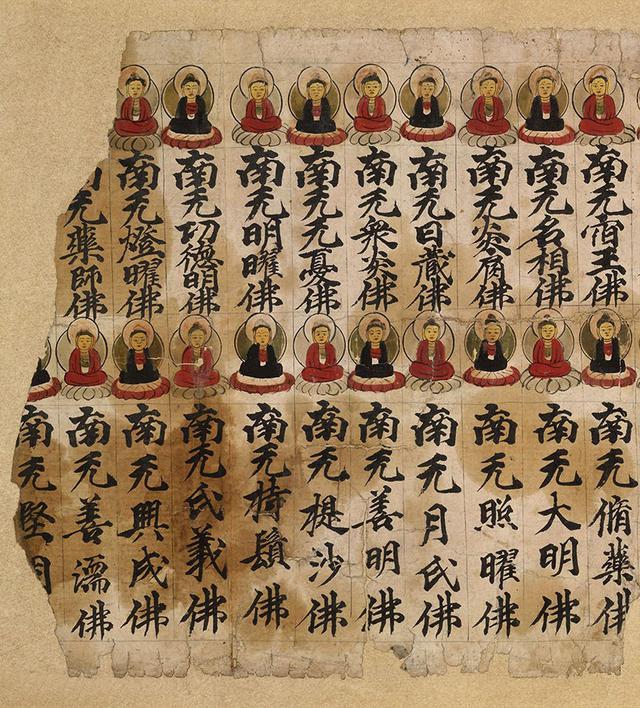 南无宿王佛
南无名相佛
南无炎肩佛
南无日藏佛
南无衆炎佛
南无无憂佛
南无明曜佛
南无功德明佛
南无燈曜佛
南无藥師佛
南无脩藥佛
南无大明佛
南无照曜佛
南无月氏佛
南无善明佛
南无提沙佛
南无持鬘佛
南无氏義佛
南无興成佛
南无善濡佛
南无堅明